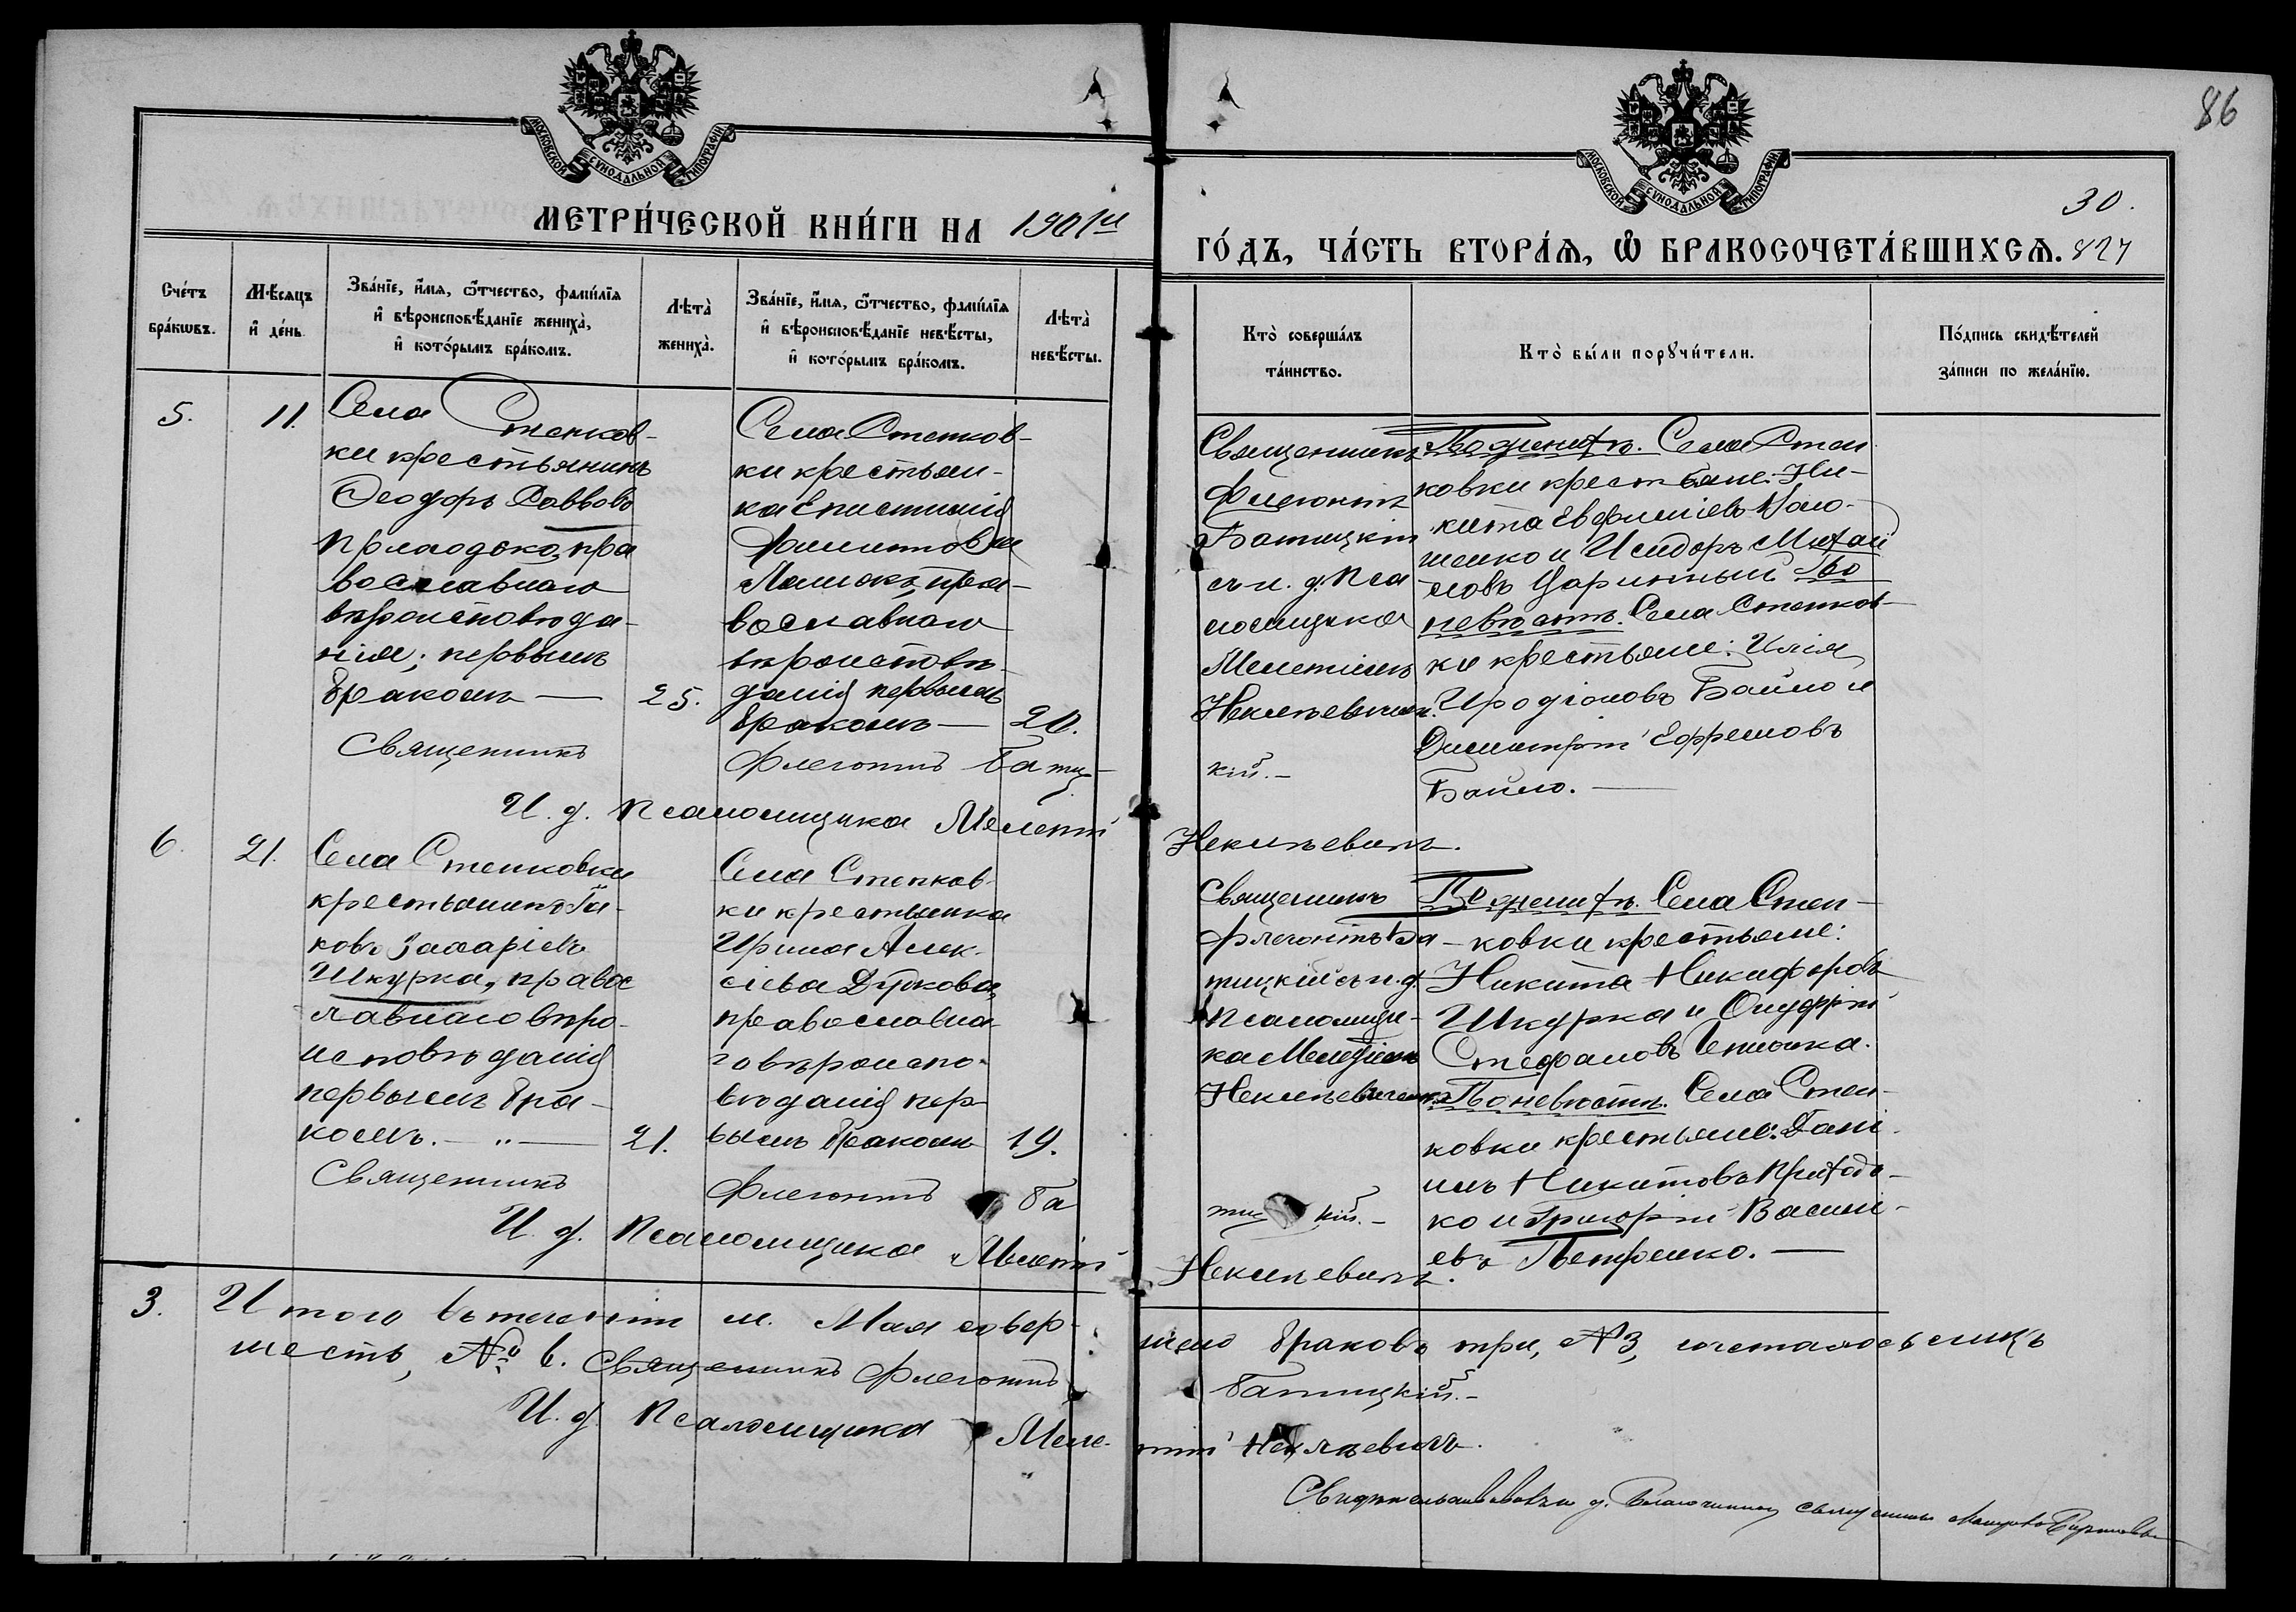 МОСКОВСКОЙ СѴНОДАЛЬНОЙ ТИПОГРАФІИ
МОСКОВСКОЙ СѴНОДАЛЬНОЙ ТИПОГРАФІИ
86
30.
МЕТРИ́ЧЕСКОЙ КНИ́ГИ НА 1901й
ГО́ДЪ, ЧА́СТЬ ВТОРА́Я, Ѡ БРАКОСОЧЕТА́ВШИХСѦ. 827
Сче́тъ
бра́кѡвъ.
Мѣ́сяцъ
и҆ де́нь.
Зва́нїе, и҆́мѧ, ѻ҆́тчество, фами́лїѧ
и҆ вѣроисповѣ́данїе жениха̀,
и҆ кото́рымъ бра́комъ.
Лѣта̀
жениха̀.
Зва́нїе, и҆́мѧ, ѻ҆́тчество, фами́лїѧ
и҆ вѣроисповѣ́данїе невѣ́сты,
и҆ кото́рымъ бра́комъ.
Лѣта̀
невѣ́сты.
Кто̀ соверша́лъ
та́инство.
Кто̀ бы́ли порꙋчи́тели.
По́дпись свидѣ́телей
за́писи по жела́нїю.
5.
11.
Села Степков-
ки крестьянинъ
Ѳеодоръ Саввовъ
православнаго
вѣроисповѣда-
нія; первымъ
бракомъ —
25.
Села Степков-
ки крестьян-
ка Епистимія
Филиповна
пра-
вославнаго
вѣроисповѣ-
данія первымъ
бракомъ —
20.
Священникъ
Флегонтъ
Батицкій
съ и. д. пса
ломщика
Мелетіемъ
Некильевичем.
По женихѣ. Села Степ
ковки крестьяне: Ни-
кита Евфиміевъ
и Исидоръ Михаи
ловъ Царинный По
невѣстѣ. Села Степков-
ки крестьяне: Илія
Иродіоновъ Байло и
Димитрій Ефремовъ
Байло. —
Священникъ Флегонтъ Батиц-
кій. —
И. д. Псаломщика Мелетій Некильевичъ.
6.
21.
Села Степковки
крестьянинъ Іа-
ковъ Захаріевъ
Шкурка, правос
лавнаго вѣро-
исповѣданія
первымъ бра-
комъ. — „ —
21.
Села Степков-
ки крестьянка
Ирина Алек-
сіева Дудкова,
православна-
го вѣроиспо-
вѣданія пер-
вымъ бракомъ
19.
Священникъ
Флегонтъ Ба-
тицкій съ и. д.
Псаломщи-
ка Мелетіемъ
Некильевичемъ
По женихѣ. Села Степ-
ковки крестьяне:
Никита Никифоровъ
Шкурка и Онуфрій
Стефановъ
По невѣстѣ. Села Степ-
ковки крестьяне: Дані-
илъ Никитовъ Приходь-
ко и Григорій Василі-
евъ Петренко. —
Священникъ Флегонтъ Ба
тицкій. —
И. д. Псаломщика Мелетій Некильевичъ.
3. Итого въ теченіи м. Мая совер- шено браковъ три, № 3, сочеталось лицъ
шесть, № 6. Священникъ Флегонтъ Батицкій. —
И. д. Псаломщика Меле- тій Некильевичъ.
священникъ